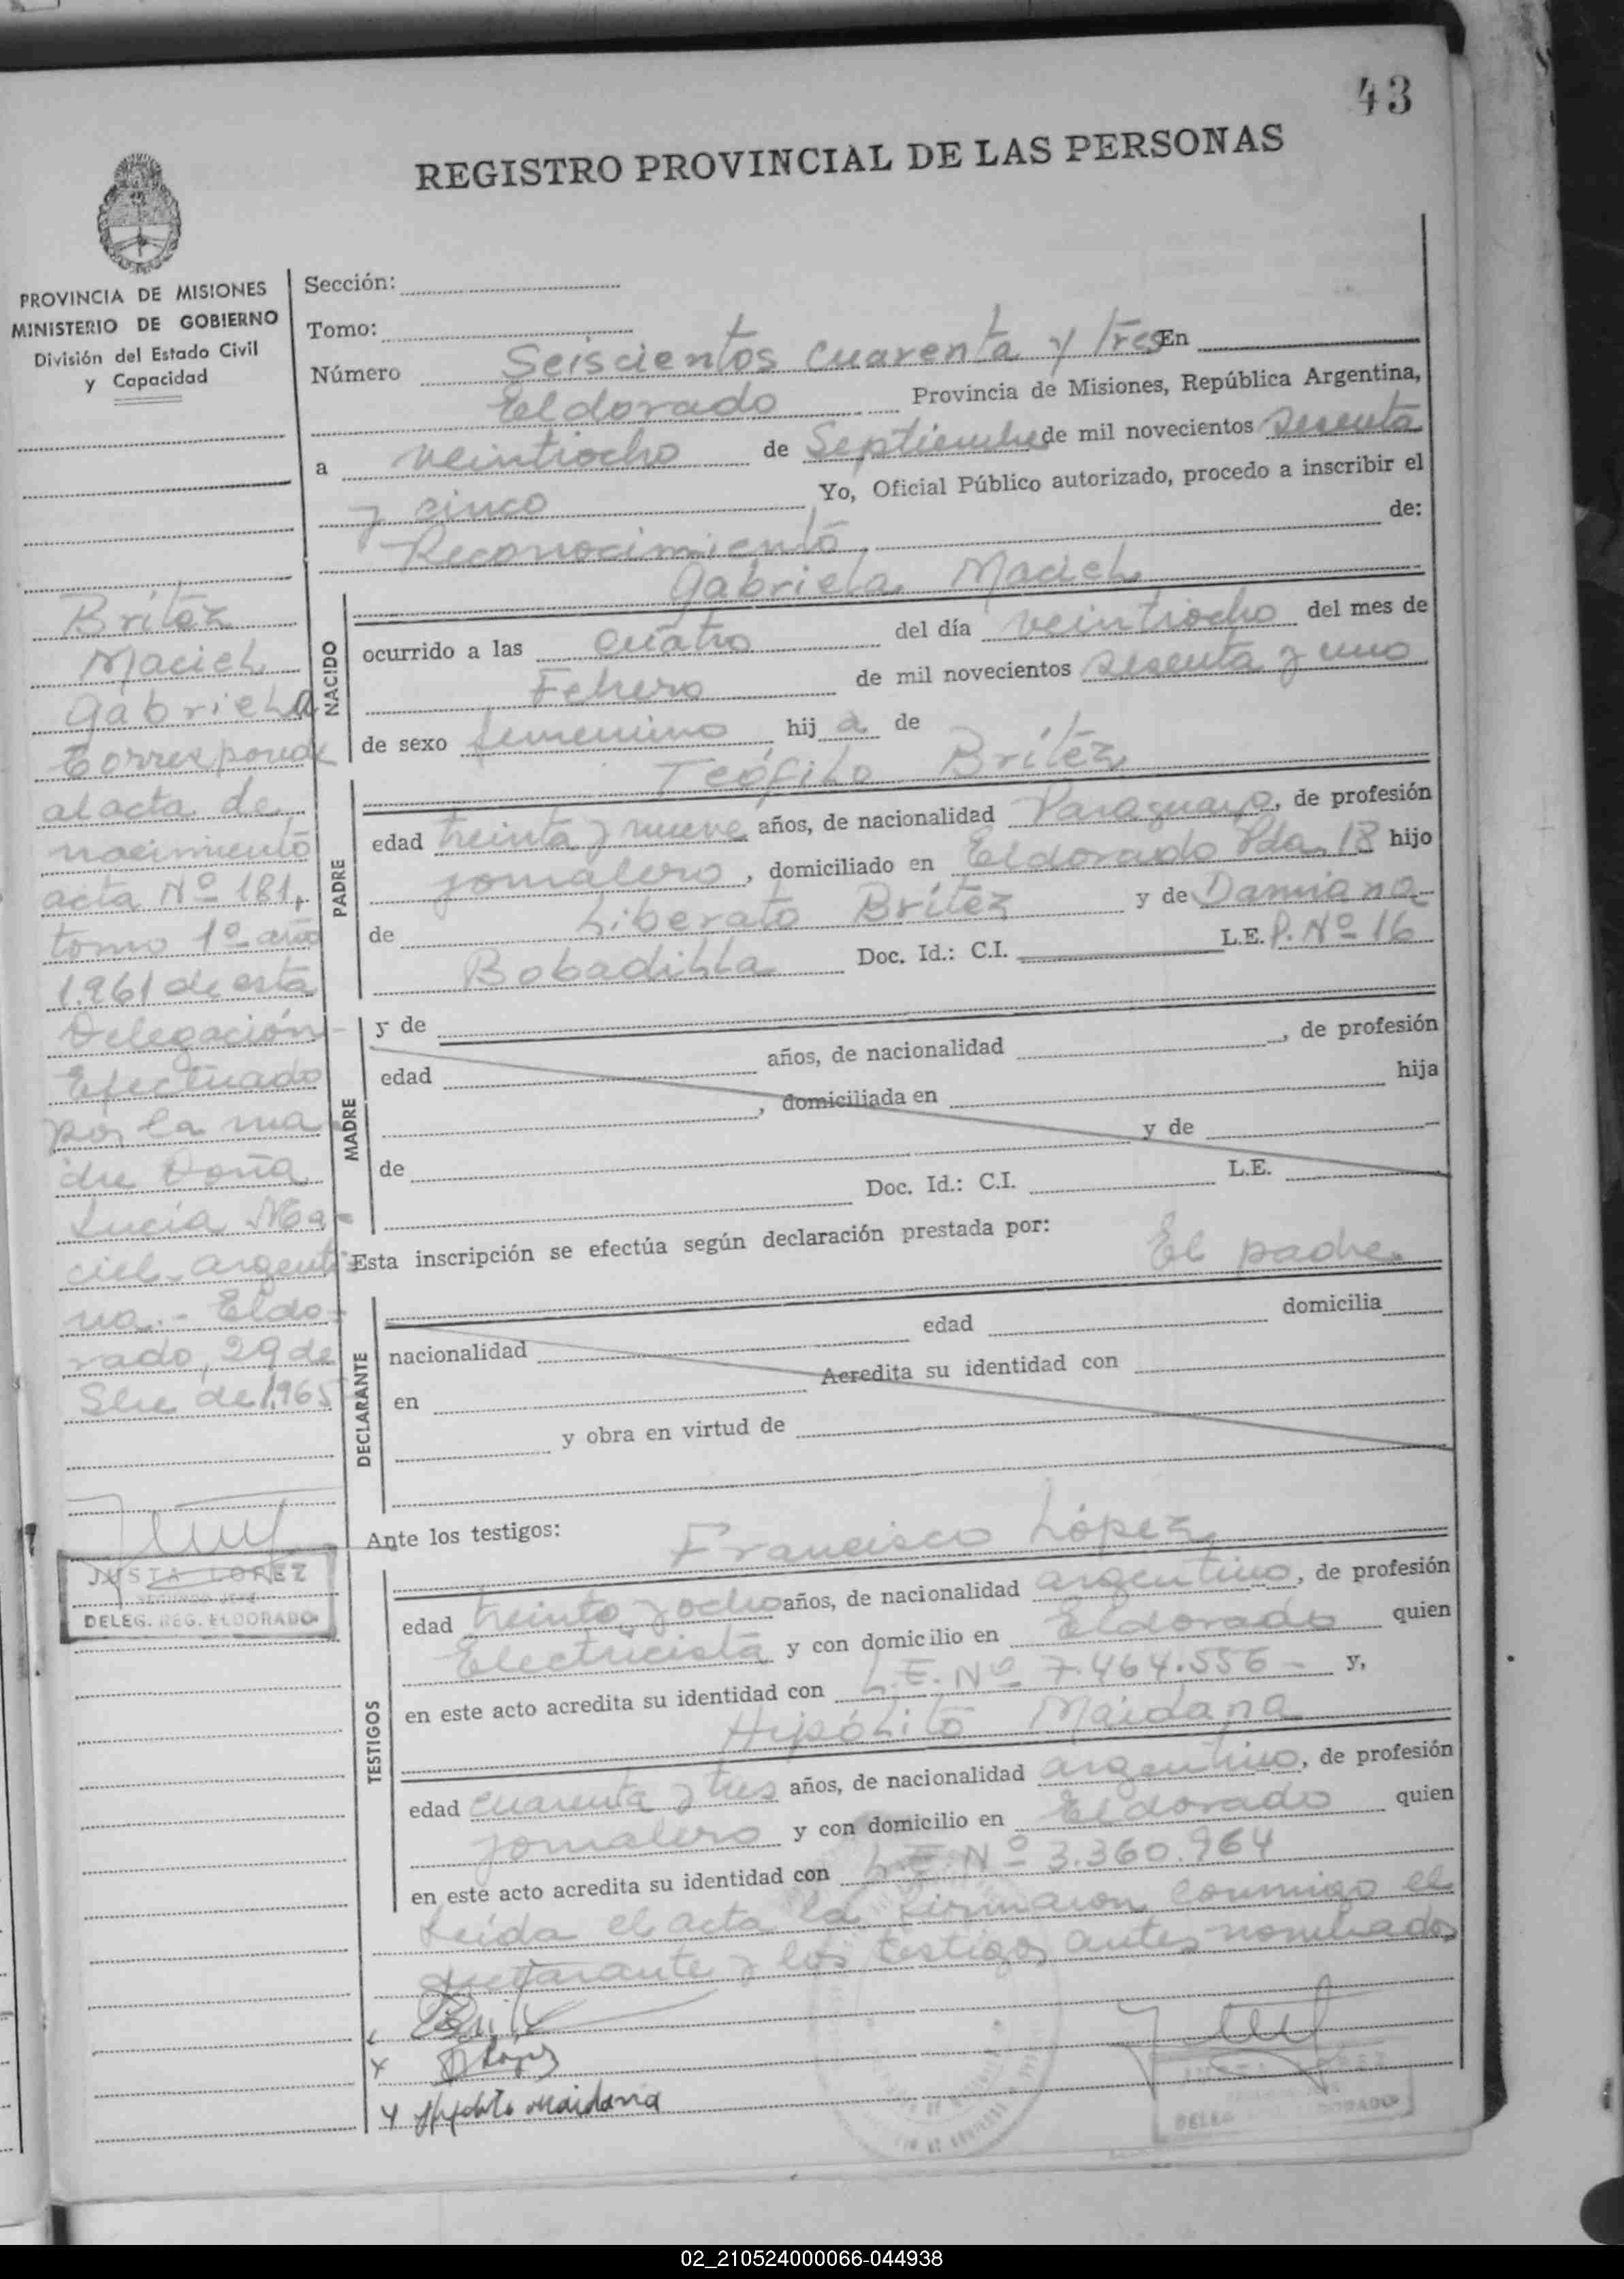 43
REGISTRO PROVINCIAL DE LAS PERSONAS
PROVINCIA DE MISIONES
MINISTERIO DE GOBIERNO
División del Estado Civil
y Capacidad
Britez
Maciel
Gabriela
Corresponde
al acta de
nacimiento
acta Nº 181,
tomo 1º año
1.961 de esta
Delegación
Efectuado
por la ma
dre Doña
Lucía Ma-
ciel-argenti-
na.- Eldo-
rado, 29 de
Sbre de 1.965
JUSTA LOPEZ
SEGUNDO JEFE
DELEG. REG. ELDORADO
Sección:
Tomo:
Número Seiscientos cuarenta y tres En
Eldorado Provincia de Misiones, República Argentina,
a veintiocho de Septiembre de mil novecientos sesenta
y cinco Yo, Oficial Público autorizado, procedo a inscribir el
Reconocimiento de:
Gabriela Maciel
NACIDO
ocurrido a las cuatro del día veintiocho del mes de
Febrero de mil novecientos sesenta y uno
de sexo femenino hij a de
Teófilo Britéz
PADRE
edad treinta y nueve años, de nacionalidad Paraguayo, de profesión
jornalero, domiciliado en Eldorado Pda. 18 hijo
de Liberato Britéz y de Damiana
Bobadilla Doc. Id.: C.I. L.E. P. Nº 16
MADRE
y de
edad años, de nacionalidad , de profesión
, domiciliada en hija
de y de
Doc. Id.: C.I. L.E.
Esta inscripción se efectúa según declaración prestada por: El padre
DECLARANTE
nacionalidad edad domicilia
en Acredita su identidad con
y obra en virtud de
Ante los testigos: Francisco López
TESTIGOS
edad treinta y ocho años, de nacionalidad argentino, de profesión
Electricista y con domicilio en Eldorado quien
en este acto acredita su identidad con L.E. Nº 7.464.556- y,
Hipólito Maidana
edad cuarenta y tres años, de nacionalidad argentino, de profesión
jornalero y con domicilio en Eldorado quien
en este acto acredita su identidad con L.E. Nº 3.360.964
Leída el acta la firmaron conmigo el
declarante y los testigos antes nombrados
Hipolito Maidana
DELEG ELDORADO
02_210524000066-044938